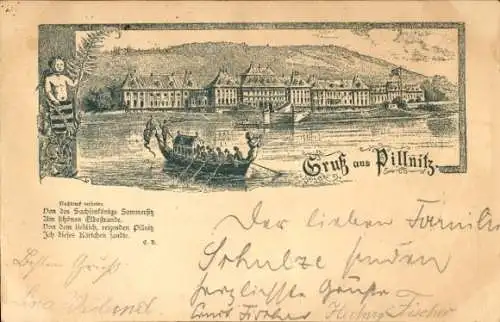 Gruß aus Pillnitz.
Nachdruck verboten
Von des Sachsenkönigs Sommersitz
Am schönen Elbestrande.
Von dem lieblich, reizenden Pillnitz
Ich dieses Kärtchen sandte.
Der lieben Familie
Schulze senden
herzlichste Grüße
Ernst Fischer Fischer
Besten Gruß